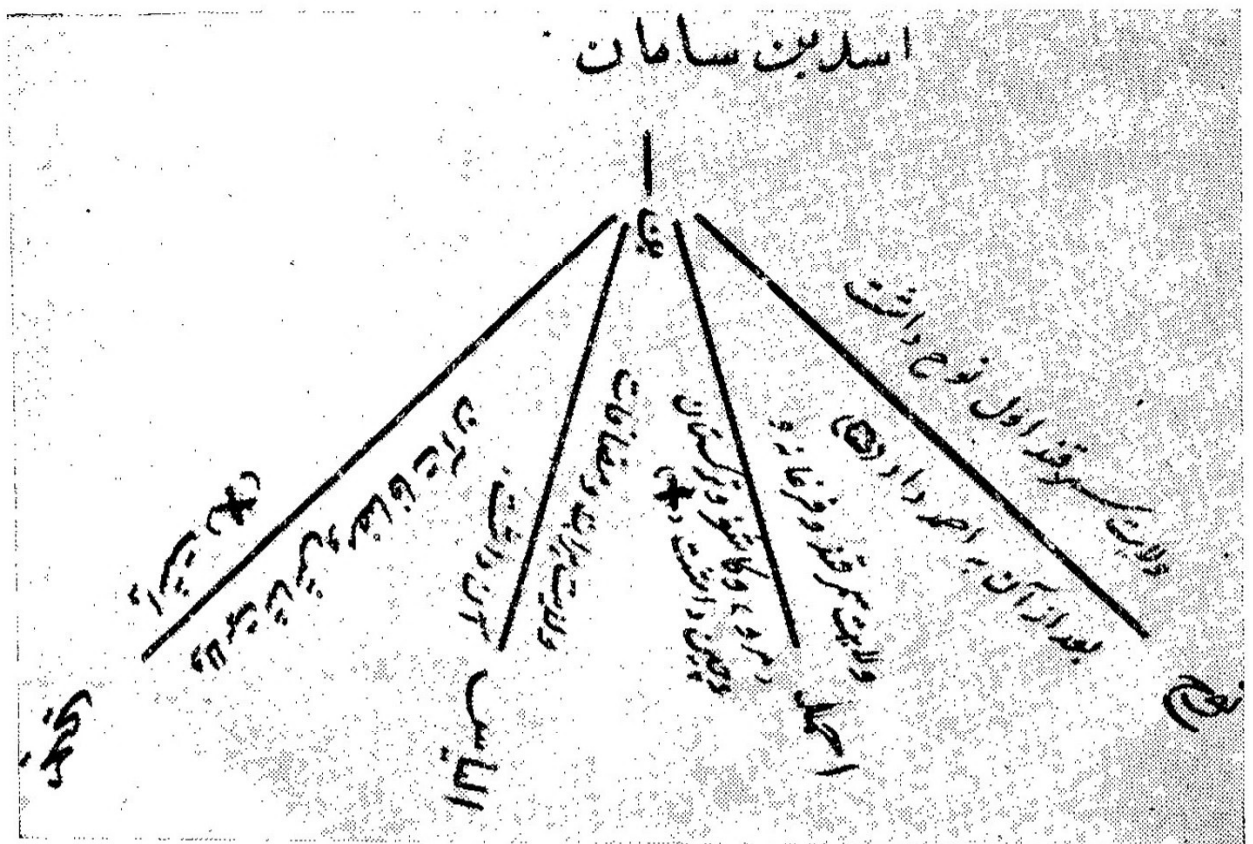 اسد بن سامان
بن
ولایت سمرقند اول نوح داشت
بعد از آن به احمد داد (۵)
نوح
ولایت سمرقند و فرغانه و
مرو، و کاشغر و ترکستان
و چین داشت، (+)
احمد
ولایت هرات و مضافات
آن داشت.
الیاس
ولایت شاش و مضافات آن
داشت (×)
یحیی